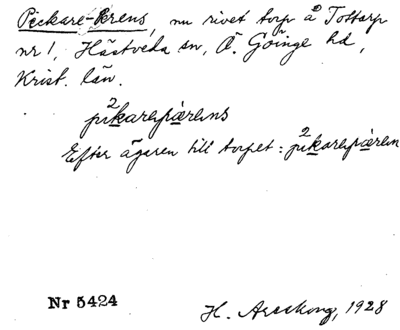 Pickare-Perens, nu rivet torp å Tottarp
nr 1, Hästveda sn, Ö. Göinge hd,
Krist. län.
Efter ägaren till torpet:
Nr 5424
H. Areskoug, 1928